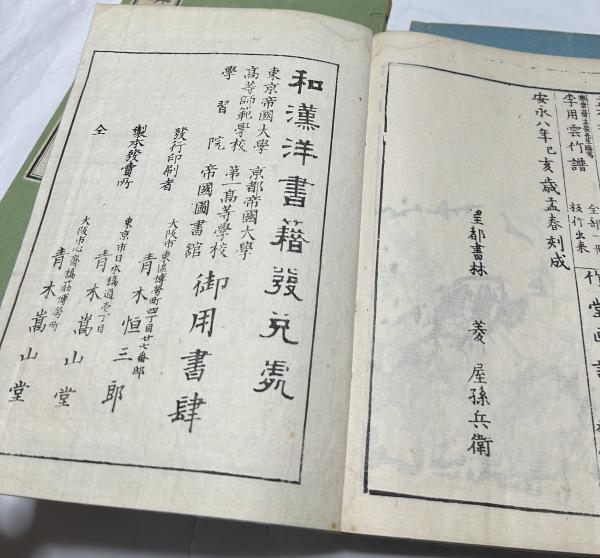 李用雲竹譜 全部一冊 板行出来
竹堂画譜
安永八年己亥歳孟春刻成
皇都書林 菱屋孫兵衛
和漢洋書籍發兌處
東京帝國大學 京都帝國大學
高等師範學校 第一高等學校
學習院 帝國圖書舘
御用書肆
發行印刷者 大阪市東區博勞町四丁目廿七番邸 青木恒三郎
製本發賣所 東京市日本橋通壱丁目 青木嵩山堂
仝 大阪市心斎橋筋博勞町 青木嵩山堂